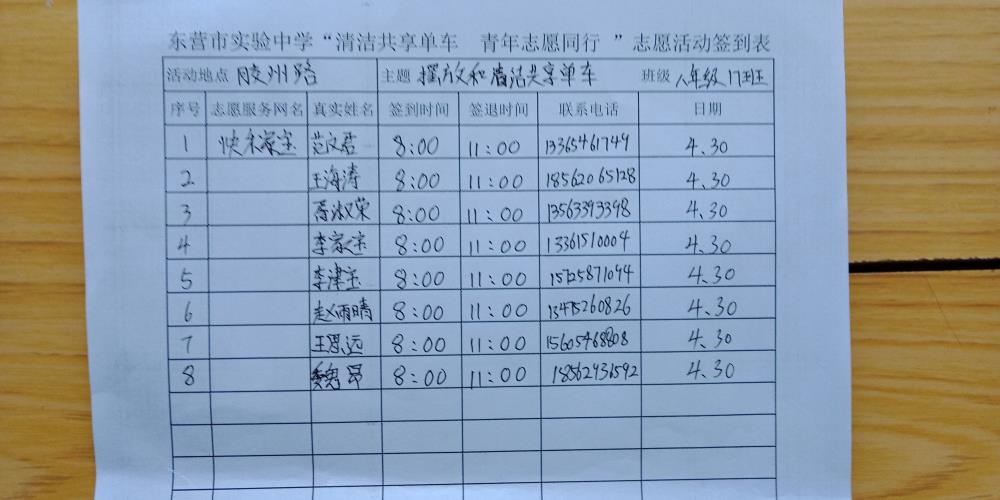 东营市实验中学“清洁共享单车 青年志愿同行 ”志愿活动签到表
活动地点 胶州路 主题 摆放和清洁共享单车 班级 八年级17班
序号 志愿服务网名 真实姓名 签到时间 签退时间 联系电话 日期
1 快乐家宝 范文君 8:00 11:00 13365461749 4.30
2 王海涛 8:00 11:00 18562065128 4.30
3 淑荣 8:00 11:00 13563393398 4.30
4 李家宝 8:00 11:00 13361510004 4.30
5 李津宝 8:00 11:00 15725871094 4.30
6 赵雨晴 8:00 11:00 13475260826 4.30
7 王思远 8:00 11:00 15605468808 4.30
8 魏昂 8:00 11:00 18562931592 4.30